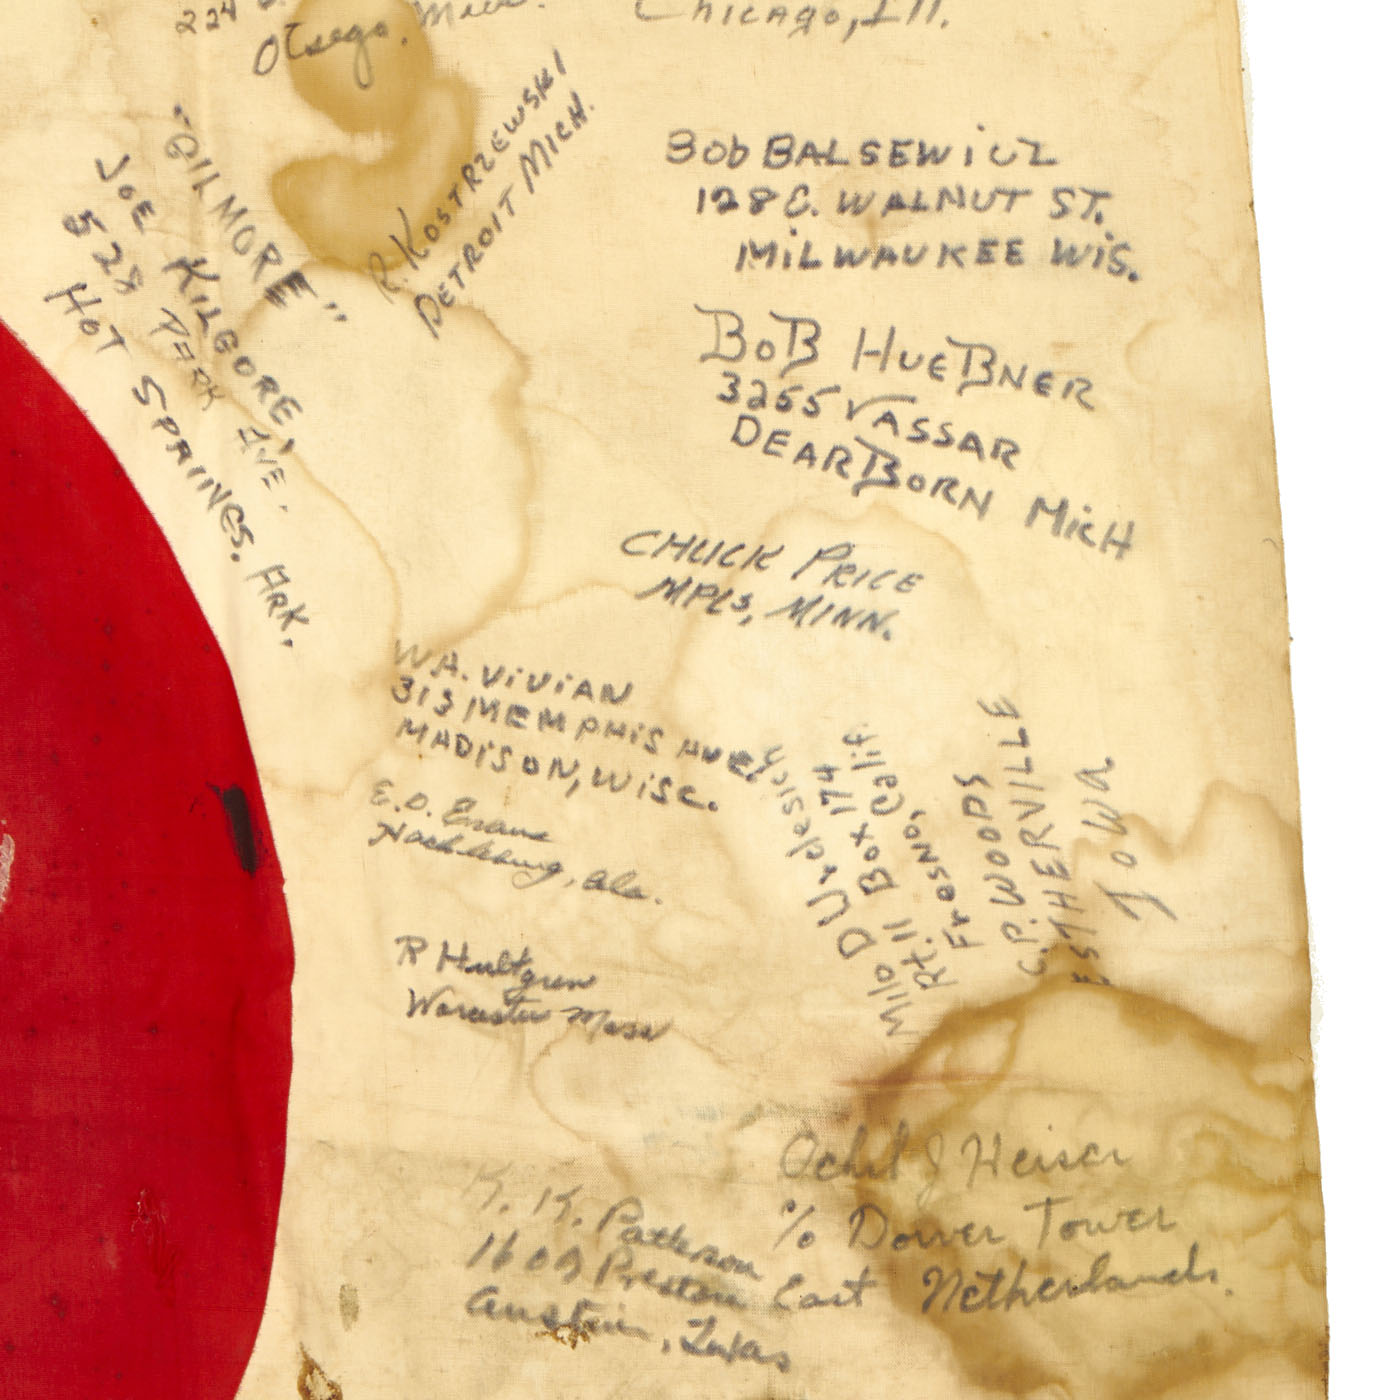 224
Otsego, Mich.
Chicago, Ill.
"GILMORE"
JOE KILGORE,
528 PARK AVE.
HOT SPRINGS. ARK.
R. KOSTRZEWSKI
DETROIT MICH.
BOb BALSEWiCZ
128 C. WALNUT ST.
MiLWAUKEE WiS.
BoB HUEBNER
3255 VASSAR
DEARBORN MicH
CHUCK PRICE
MPLS, MINN.
WA. ViViAN
313 MEMPHiS AVE.
MADiSON, WiSC.
E.O. Evans
Hackleburg, Ala.
R Hultgren
Worcester Mass
Milo D Uzelesich
Rt. 11 Box 174
Fresno, Calif.
C.P. WOODS
ESTHERVILLE
Iowa
J Heiser
c/o Dower Tower
East Netherlands.
K. K. Patterson
1609 Preston
Austin, Texas